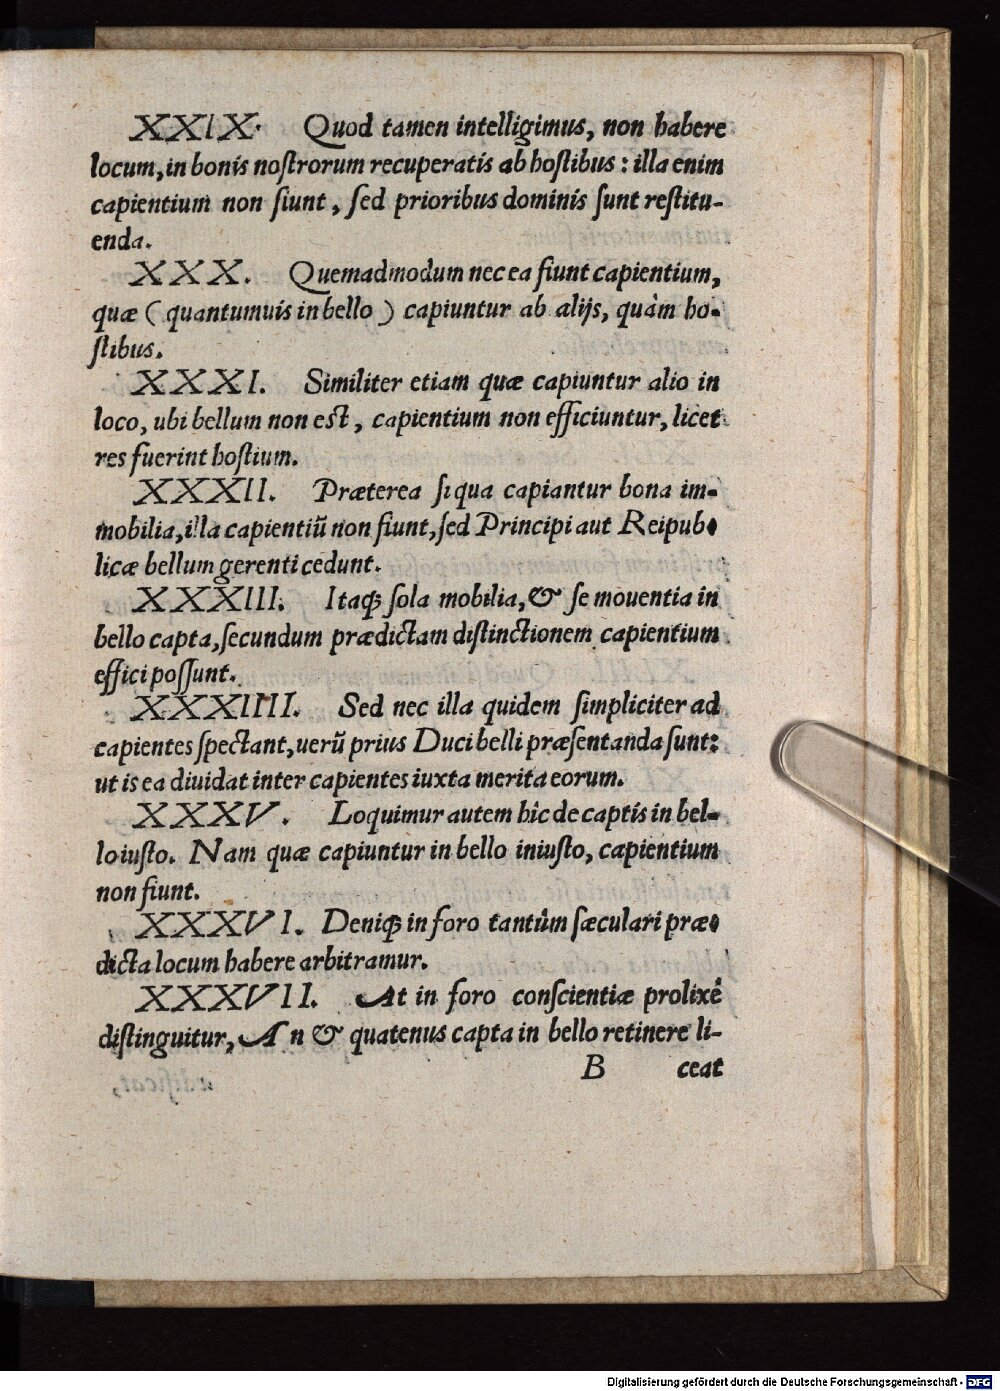 XXIX. Quod tamen intelligimus, non habere
locum, in bonis noſtrorum recuperatis ab hoſtibus: illa enim
capientium non fiunt, ſed prioribus dominis ſunt reſtitu-
enda.
XXX. Quemadmodum nec ea fiunt capientium,
quæ (quantumuis in bello) capiuntur ab alijs, quàm ho-
ſtibus.
XXXI. Similiter etiam quæ capiuntur alio in
loco, ubi bellum non eſt, capientium non efficiuntur, licet
res fuerint hoſtium.
XXXII. Præterea ſi qua capiantur bona im-
mobilia, illa capientiũ non fiunt, ſed Principi aut Reipub-
licæ bellum gerenti cedunt.
XXXIII. Itaq; ſola mobilia, & ſe mouentia in
bello capta, ſecundum prædictam diſtinctionem capientium
effici poſſunt.
XXXIIII. Sed nec illa quidem ſimpliciter ad
capientes ſpectant, uerũ prius Duci belli præſentanda ſunt:
ut is ea diuidat inter capientes iuxta merita eorum.
XXXV. Loquimur autem hîc de captis in bel-
lo iuſto. Nam quæ capiuntur in bello iniuſto, capientium
non fiunt.
XXXVI. Deniq; in foro tantùm ſæculari præ-
dicta locum habere arbitramur.
XXXVII. At in foro conſcientiæ prolixè
diſtinguitur, An & quatenus capta in bello retinere li-
B ceat
Digitalisierung gefördert durch die Deutsche Forschungsgemeinschaft - DFG